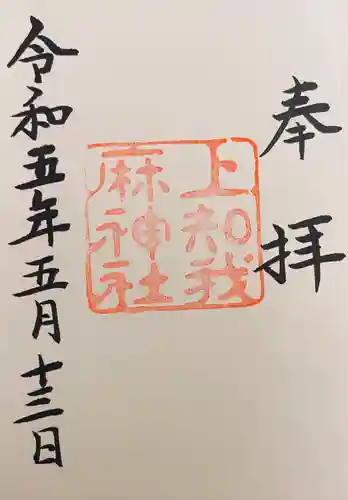 奉拝
上知我
麻神社
令和五年五月十三日